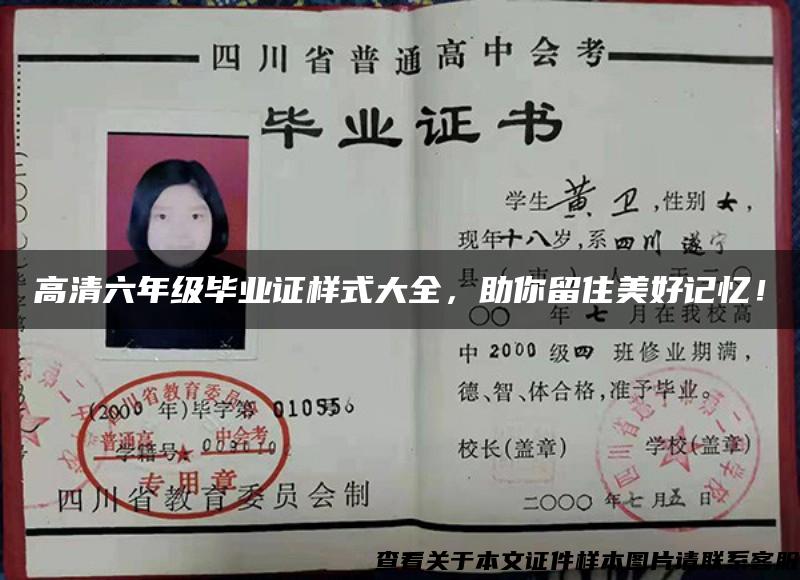 四川省普通高中会考
毕业证书
学生黄卫,性别女,
现年十八岁,系四川遂宁
高清六年级毕业证样式大全，助你留住美好记忆！
〇〇年七月在我校高
中2000级四班修业期满,
德、智、体合格,准予毕业。
四川省教育委员会
(2000年)毕学第010556
普通高
中会考
学籍号
专用章
校长(盖章)
学校(盖章)
四川省教育委员会制
二〇〇〇年七月五日
查看关于本文证件样本图片请联系客服